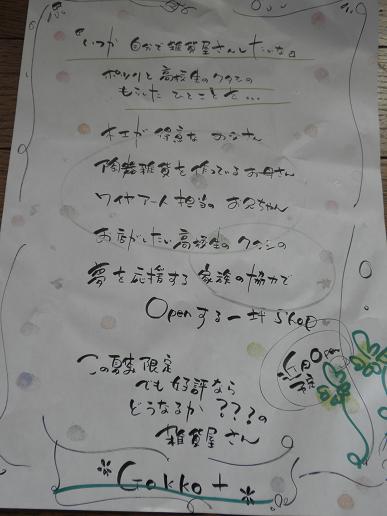 「いつか 自分で雑貨屋さんしたいな」
ポツリと高校生のワタシの
もらした ひとことを...
木工が得意な お父さん
陶器雑貨を作っているお母さん
ワイヤーアート担当の お兄ちゃん
お店がしたい高校生のワタシの
夢を応援する 家族の協力で
Openする 一坪 SHOP
6月Open
予定
この夏季限定
でも好評なら
どうなるか???の
雑貨屋さん
*Gakko+*